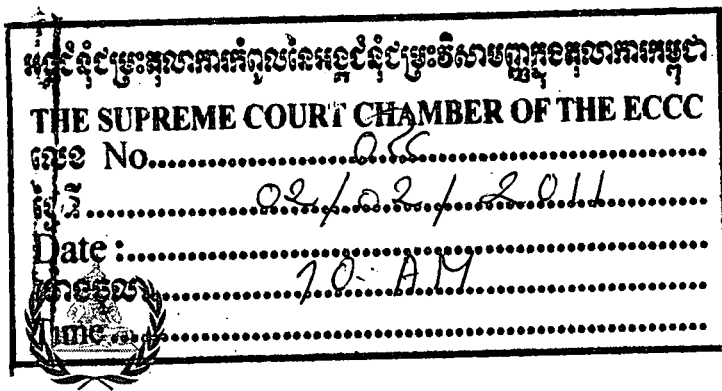 អង្គជំនុំជម្រះតុលាការកំពូលនៃអង្គជំនុំជម្រះវិសាមញ្ញក្នុងតុលាការកម្ពុជា
THE SUPREME COURT CHAMBER OF THE ECCC
លេខ No.
02/02/2011
Date :
10. AM
Time